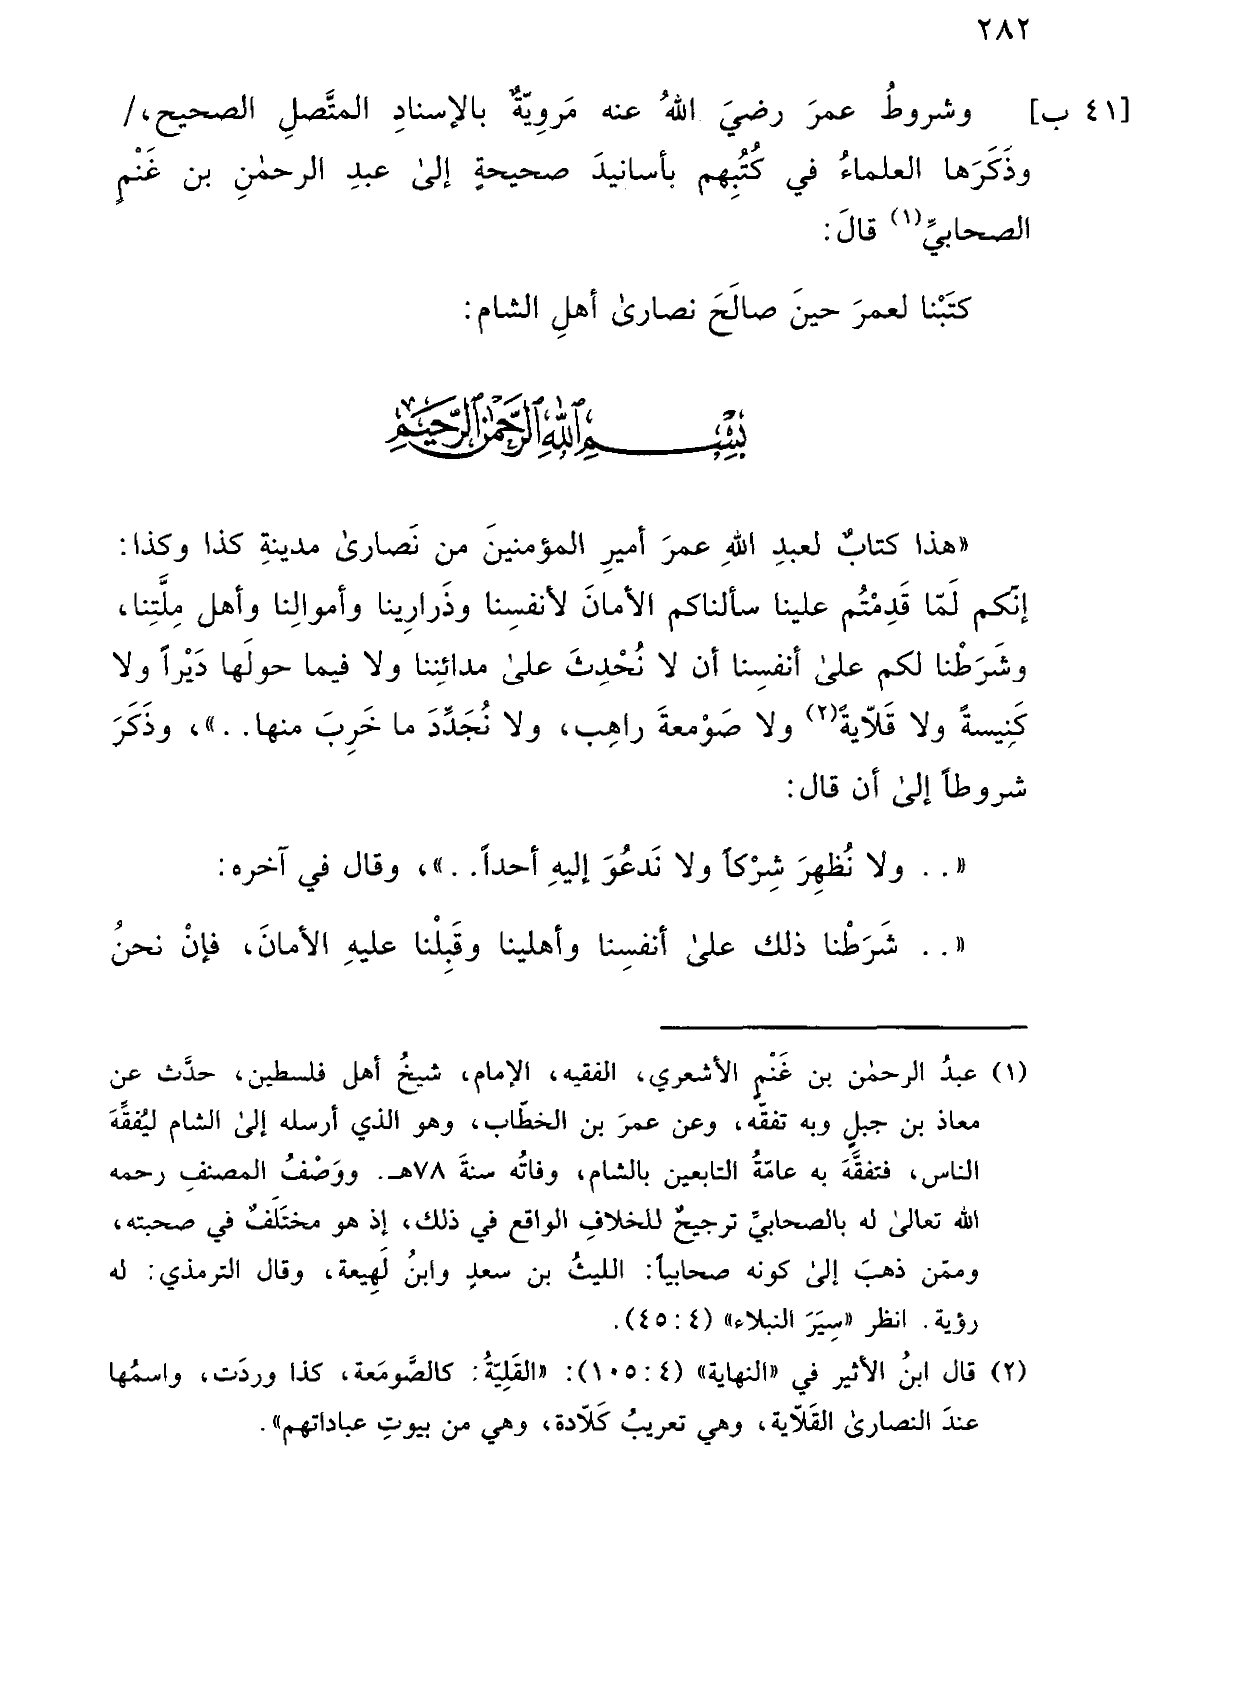 ٢٨٢
[٤١ ب] وشروطُ عمرَ رضيَ اللهُ عنه مَرويّةٌ بالإسنادِ المتَّصلِ الصحيح،/
وذَكَرَها العلماءُ في كُتُبِهم بأسانيدَ صحيحةٍ إلىٰ عبدِ الرحمٰنِ بن غَنْمٍ
الصحابيِّ(١) قالَ:
كتَبْنا لعمرَ حينَ صالَحَ نصارىٰ أهلِ الشام:
بِسْمِ اللهِ الرَّحْمٰنِ الرَّحِيمِ
«هذا كتابٌ لعبدِ اللهِ عمرَ أميرِ المؤمنينَ من نَصارىٰ مدينةِ كذا وكذا:
إنّكم لَمّا قَدِمْتُم علينا سألناكم الأمانَ لأنفسِنا وذَرارِينا وأموالِنا وأهل مِلَّتِنا،
وشَرَطْنا لكم علىٰ أنفسِنا أن لا نُحْدِثَ علىٰ مدائنِنا ولا فيما حولَها دَيْراً ولا
كَنِيسةً ولا قَلاّيةً(٢) ولا صَوْمعةَ راهِب، ولا نُجَدِّدَ ما خَرِبَ منها. .»، وذَكَرَ
شروطاً إلىٰ أن قال:
«. . ولا نُظهِرَ شِرْكاً ولا نَدعُوَ إليهِ أحداً. .»، وقال في آخره:
«. . شَرَطْنا ذلك علىٰ أنفسِنا وأهلينا وقَبِلْنا عليهِ الأمانَ، فإنْ نحنُ
(١) عبدُ الرحمٰن بن غَنْمٍ الأشعري، الفقيه، الإمام، شيخُ أهل فلسطين، حدَّث عن
معاذ بن جبلٍ وبه تفقّه، وعن عمرَ بن الخطّاب، وهو الذي أرسله إلىٰ الشام ليُفقَّهَ
الناس، فتفقَّهَ به عامّةُ التابعين بالشام، وفاتُه سنةَ ٧٨هـ. ووَصْفُ المصنفِ رحمه
الله تعالىٰ له بالصحابيِّ ترجيحٌ للخلافِ الواقع في ذلك، إذ هو مختَلَفٌ في صحبته،
وممّن ذهبَ إلىٰ كونه صحابياً: الليثُ بن سعدٍ وابنُ لَهِيعة، وقال الترمذي: له
رؤية. انظر «سِيَرَ النبلاء» (٤ :٤٥).
(٢) قال ابنُ الأثير في «النهاية» (٤ :١٠٥): «القَلِيّةُ: كالصَّومَعة، كذا وردَت، واسمُها
عندَ النصارىٰ القَلاّية، وهي تعريبُ كَلاّدة، وهي من بيوتِ عباداتهم».